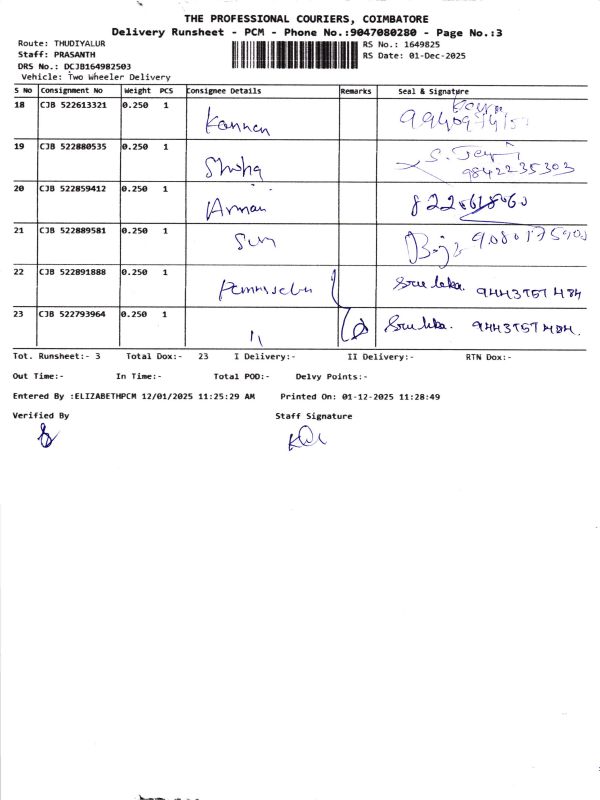 THE PROFESSIONAL COURIERS, COIMBATORE
Delivery Runsheet - PCM - Phone No.:9047080280 - Page No.:3
Route: THUDIYALUR
RS No.: 1649825
Staff: PRASANTH
RS Date: 01-Dec-2025
DRS No.: DCJB164982503
Vehicle: Two Wheeler Delivery
S No Consignment No Weight PCS Consignee Details Remarks Seal & Signature
18 CJB 522613321 0.250 1 Kannan
19 CJB 522880535 0.250 1 9842235303
20 CJB 522859412 0.250 1
21 CJB 522889581 0.250 1
22 CJB 522891888 0.250 1
23 CJB 522793964 0.250 1 11
Tot. Runsheet:- 3 Total Dox:- 23 I Delivery:- II Delivery:- RTN Dox:-
Out Time:- In Time:- Total POD:- Delvy Points:-
Entered By :ELIZABETHPCM 12/01/2025 11:25:29 AM Printed On: 01-12-2025 11:28:49
Verified By Staff Signature